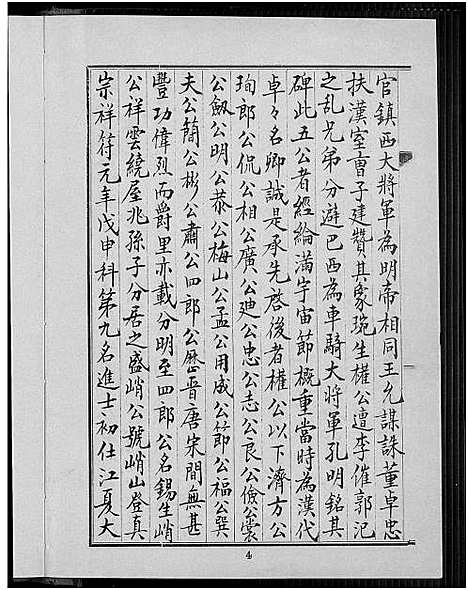 官鎮西大將軍為明帝相同王允謀誅董卓忠
扶漢室曹子建贊其象琬生權公遭李傕郭汜
之乱兄弟分避巴西為車騎大將軍孔明銘其
碑此五公者經綸滿宇宙節概重當時為漢代
卓々名卿誠是承先啓後者權公以下濟方公
珣郎公侃公相公廣公廸公忠公志公良公儉公裳
公劔公明公恭公梅山公孟公用成公節公福公巽
夫公簡公彬公肅公四郎公歷晋唐宋間無甚
豐功偉烈而爵里亦載分明至四郎公名錫生峭
公祥雲繞屋兆孫子分居之盛峭公號峭山登真
宗祥符元年戊申科第九名進士初仕江夏大
4